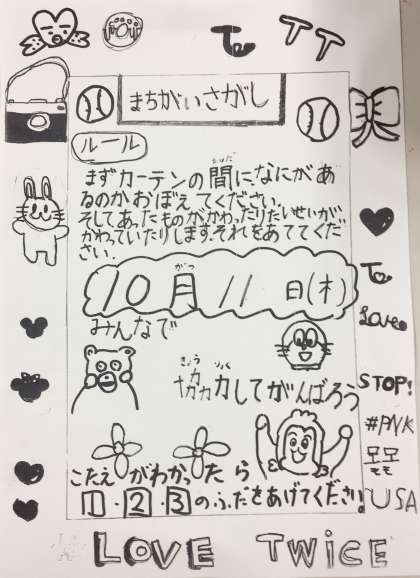 To
TT
まちがいさがし
ルール
まずカーテンの間になにがあ
あいだ
るのかおぼえてください。
そしてあったものがかわったりたいせいが
かわっていたりします。それをあててくだ
さい。
がつ
10月 11日(木)
みんなで
きょうりょく
協力してがんばろう
To
Love
STOP!
#PNK
モモ
USA
こたえがわかったら
1・2・3のふだをあげてください。
LOVE TWICE